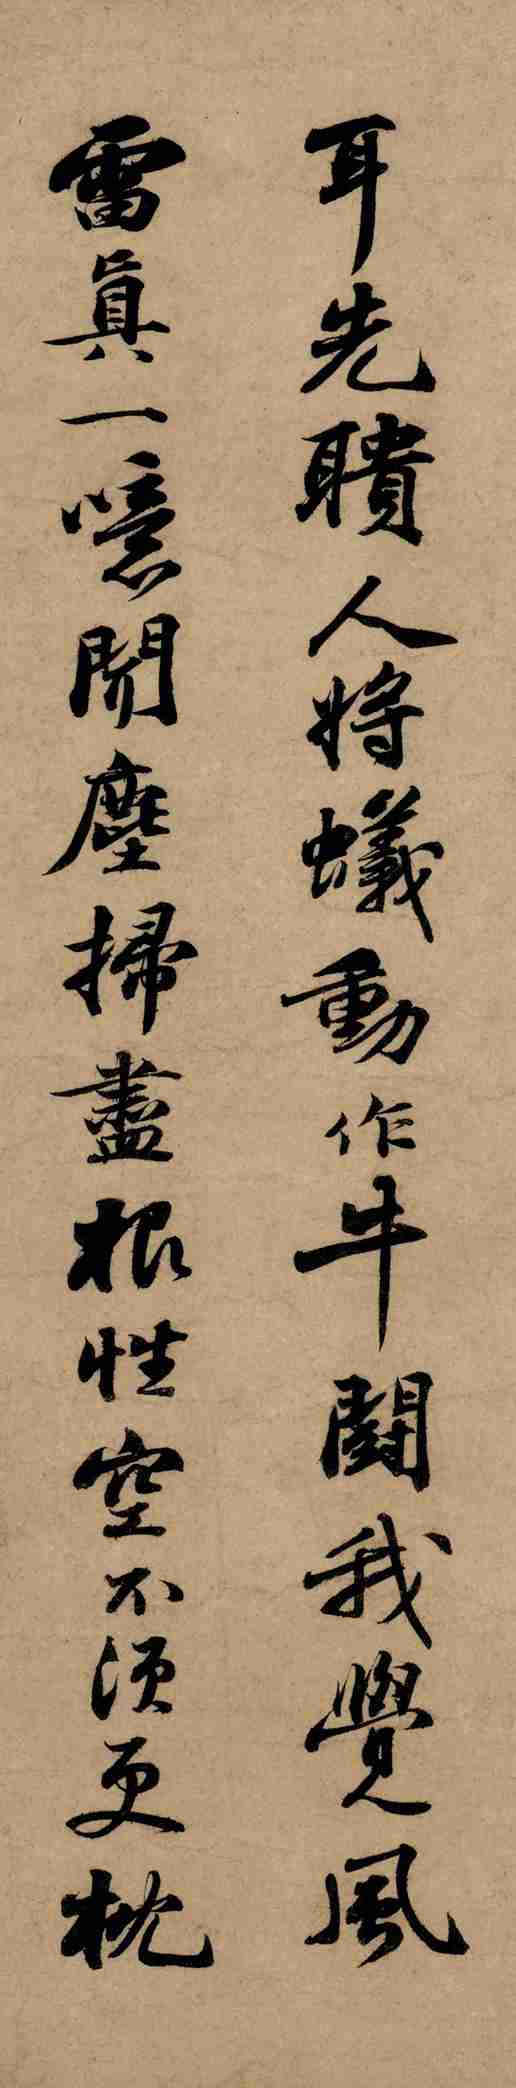 耳先聵人將蟻動作牛鬭我覺風
雷真一噫閒塵掃盡根性空不須更枕